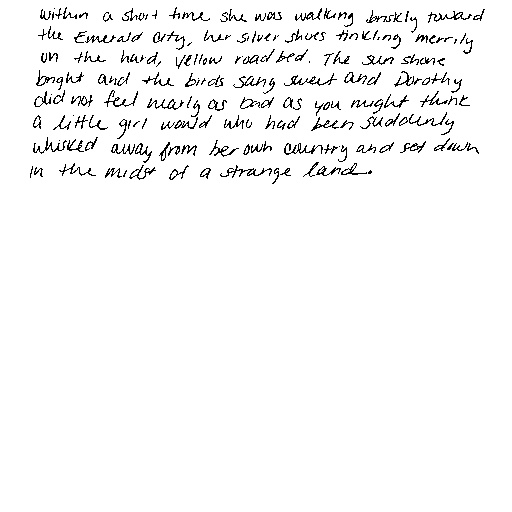 within a short time she was walking briskly toward
the Emerald City, her silver shoes tinkling merrily
on the hard, yellow roadbed. The sun shone
bright and the birds sang sweet and Dorothy
did not feel nearly as bad as you might think
a little girl would who had been suddenly
whisked away from her own country and set down
in the midst of a strange land.